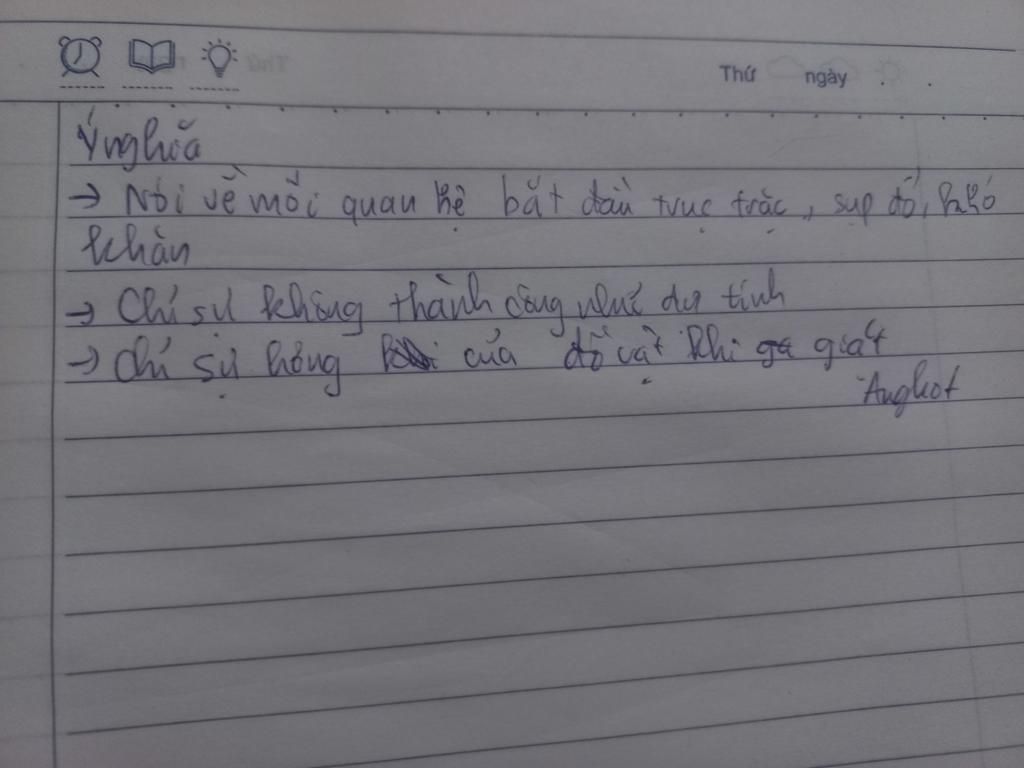 Thứ ngày
Ý nghĩa
→ Nói về mối quan hệ bắt đầu trục trặc, sụp đổ, khó
khăn
→ Chỉ sự không thành công như dự tính
→ chỉ sự hỏng của đồ vật khi giặt
Angkot